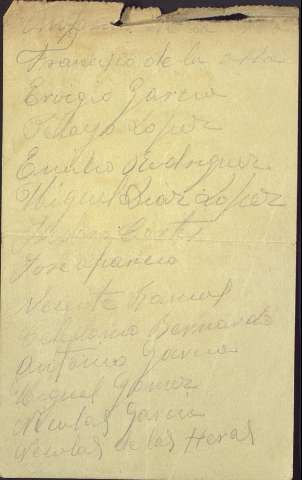 Francisco de la
Ervigio Garcia
Pelayo Lopez
Emilio Rodriguez
Miguel Diaz Lopez
Cortes
Jose aparicio
Vicente Ramos
Bernardo
Antonio Garcia
Miguel Gomez
Nicolas Garcia
Nicolas de las Heras